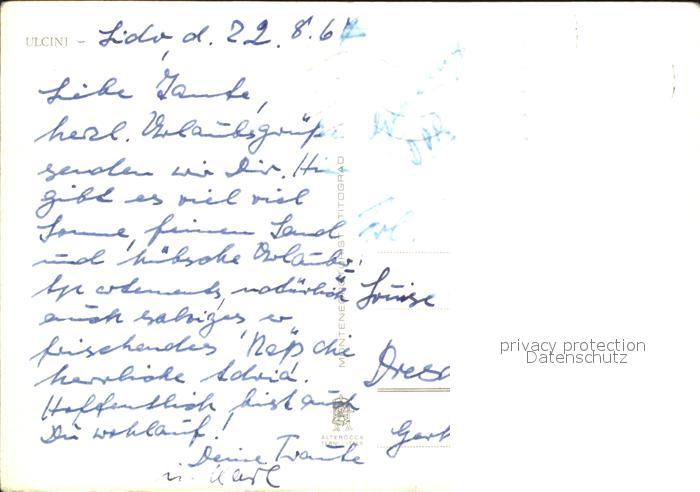 ULCINJ - Lido, d. 22. 8. 67
Liebe Tante,
herzl. Urlaubsgrüße
senden wir Dir. Hier
gibt es viel viel
Sonne, feinen Sand
und hübsche Urlaubs-
auch salziges er
frischendes Naß die
herrliche Adria.
Hoffentlich bist auch
Du wohlauf!
Deine Traute
u. Karl
Frl.
Louise
Dresd
MONTENEGROTURIST TITOGRAD
ALTEROCCA
TERNI
privacy protection
Datenschutz